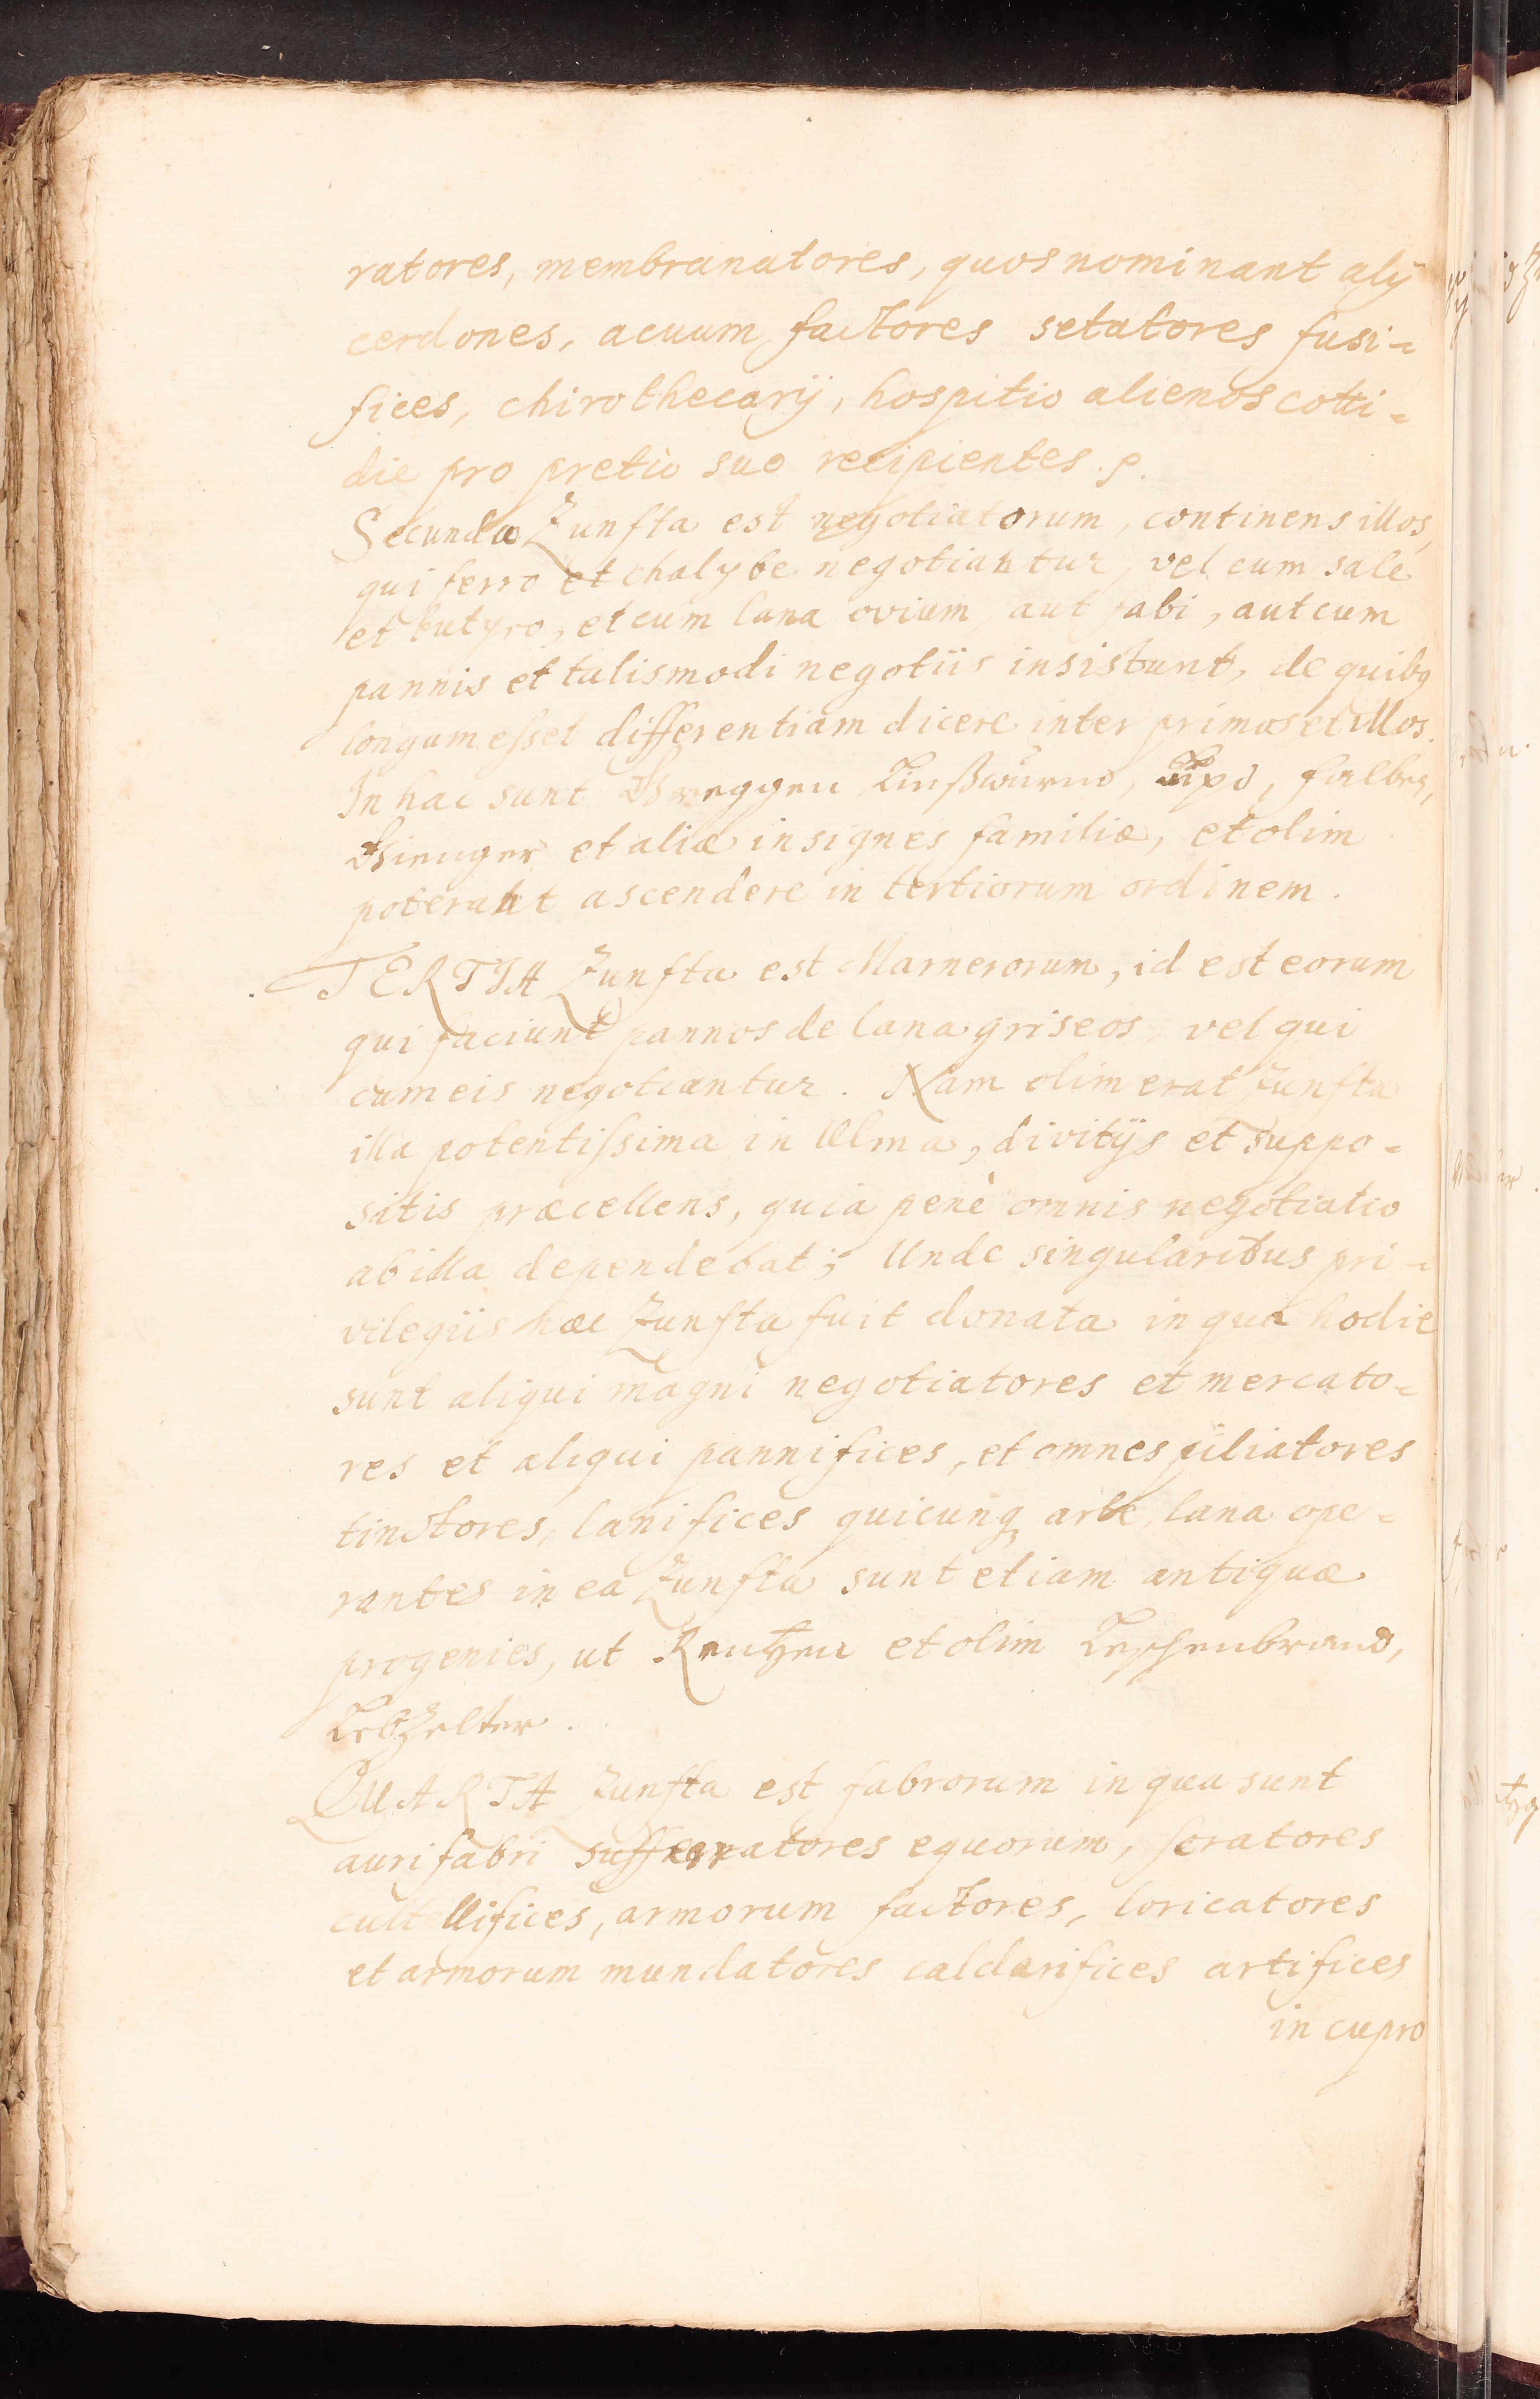 ratores, membranatores, quos nominant alÿ
cerdones, acuum factores setatores fusi-
fices, chirothecarÿ, hospitio alienos cotti-
die pro pretio suo recipientes.
Secunda Zunfta est negotiatorum, continens illos,
qui ferro et chalybe negotiantur, vel cum sale
et butyro, et cum lana ovium, aut sabi, aut cum
pannis et talismodi negotiis insistunt, de quibq
longum esset differentiam dicere inter primos et illos.
In hac sunt Greggen Linßwurmb,
Gienger et aliæ insignes familiæ, et olim
poterant ascendere in tertiorum ordinem.
TERTIA Zunfta est Marnerorum, id est eorum
qui faciunt pannos de lana griseos, vel qui
cum eis negotiantur. Nam olim erat Zunfta
illa potentissima in Ulma, divitÿs et suppo-
sitis præcellens, quia penè omnis negotiatio
ab illa dependebat; Unde singularibus pri-
vilegiis hæc Zunfta fuit donata in qua hodie
sunt aliqui magni negotiatores et mercato-
res et aliqui pannifices, et omnes piliatores
tinctores, lanifices quicunq arte, lana ope-
rantes in ea Zunfta sunt etiam antiquæ
progenies, ut Rentzen et olim Teschenbrand,
Lebzelter.
QUARTA Zunfta est fabrorum in qua sunt
aurifabri sufferratores equorum, seratores
cultellifices, armorum factores, loricatores
et armorum mundatores caldarifices artifices
in cupro